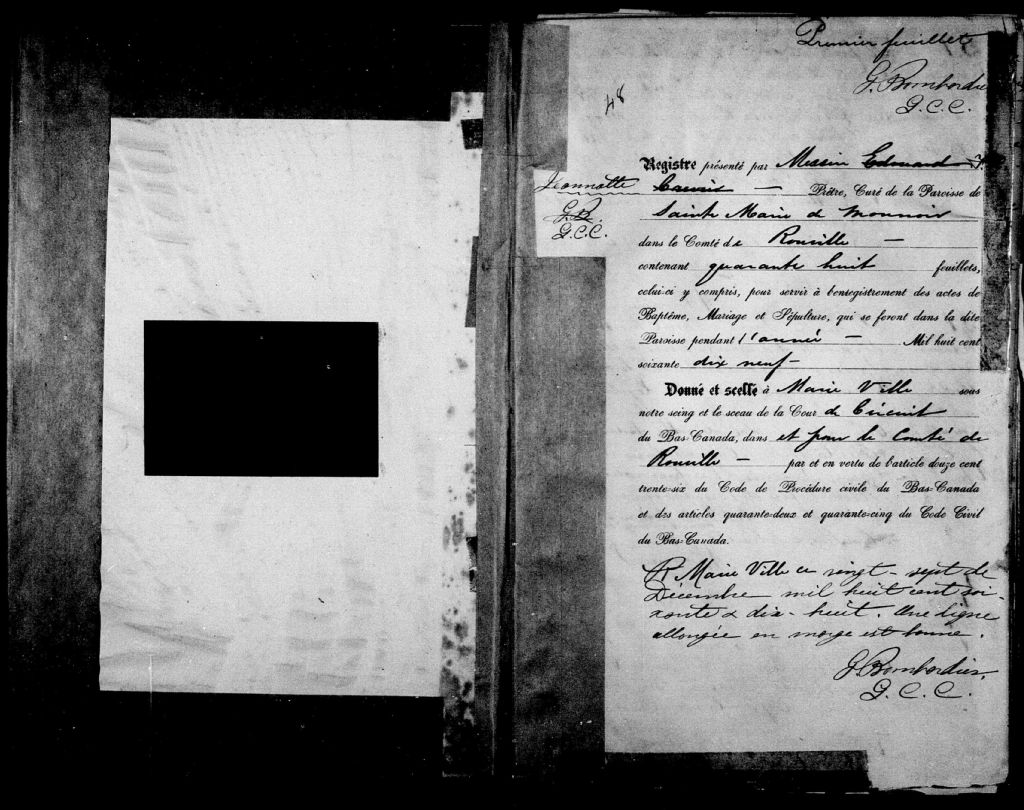 Premier feuillet
G. Bombardier
G.C.C.
48
Registre présenté par Messire Edouard J.
Jeannotte
G.B.
G.C.C.
— Prêtre, Curé de la Paroisse de
Sainte Marie de Monnoir
dans le Comté de Rouville —
contenant quarante huit feuillets,
celui-ci y compris, pour servir à l'enregistrement des actes de
Baptême, Mariage et Sépulture, qui se feront dans la dite
Paroisse pendant l'année — Mil huit cent
soixante dix neuf —
Donné et scellé à Marie Ville sous
notre seing et le sceau de la Cour de Circuit
du Bas-Canada, dans et pour le Comté de
Rouville — par et en vertu de l'article douze cent
trente-six du Code de Procédure civile du Bas-Canada
et des articles quarante-deux et quarante-cinq du Code Civil
du Bas-Canada.
A Marie Ville ce vingt-sept de
Décembre mil huit cent soi-
xante & dix-huit. Une ligne
allongée en marge est bonne.
G. Bombardier,
G.C.C.